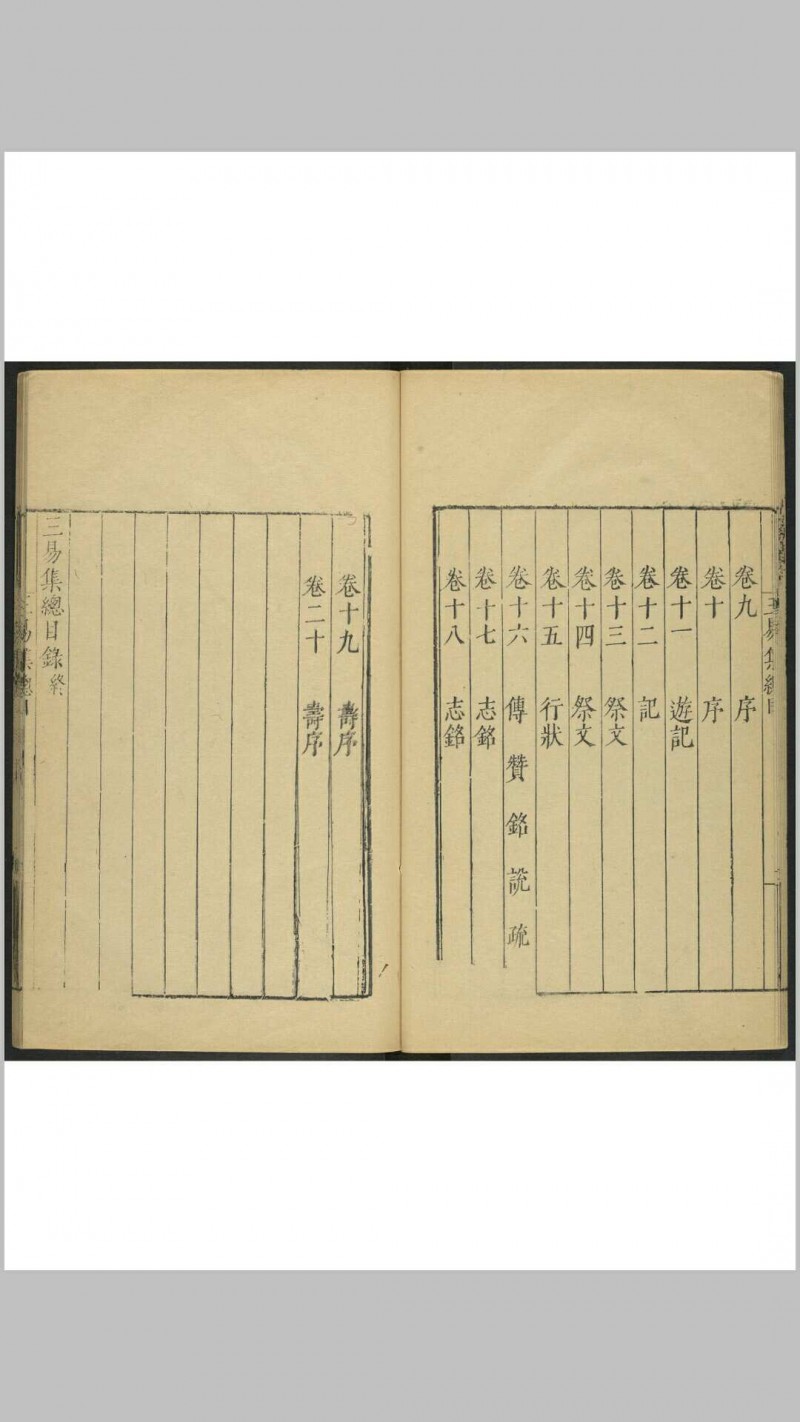 三易集總目
卷九 序
卷十 序
卷十一 遊記
卷十二 記
卷十三 祭文
卷十四 祭文
卷十五 行狀
卷十六 傳 贊 銘 說 疏
卷十七 志銘
卷十八 志銘
卷十九 壽序
卷二十 壽序
三易集總目錄終
三易集總目